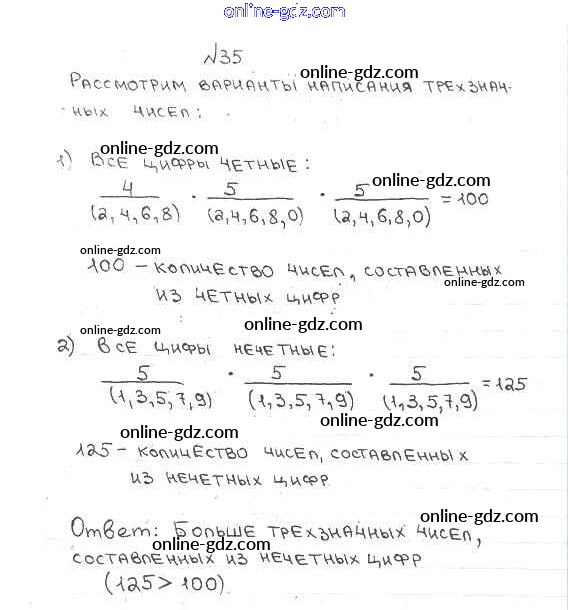 online-gdz.com
№35
online-gdz.com
Рассмотрим варианты написания трехзнач-
-ных чисел:
online-gdz.com
1) Все цифры четные:
online-gdz.com
4/(2,4,6,8) · 5/(2,4,6,8,0) · 5/(2,4,6,8,0) = 100
online-gdz.com
100 – количество чисел, составленных
online-gdz.com
из четных цифр
online-gdz.com
online-gdz.com
2) Все цифы нечетные:
5/(1,3,5,7,9) · 5/(1,3,5,7,9) · 5/(1,3,5,7,9) = 125
online-gdz.com
online-gdz.com
125 – количество чисел, составленных
из нечетных цифр
online-gdz.com
Ответ: Больше трехзначных чисел,
online-gdz.com
составленных из нечетных цифр
(125 > 100)